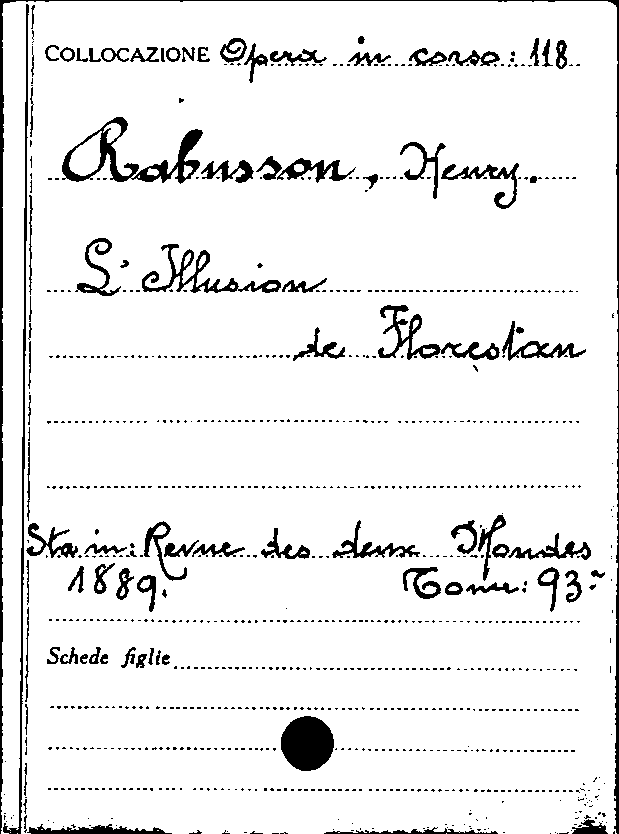 COLLOCAZIONE Opera in corso: 118
Rabusson, Henry.
L'Illusion
de Florestan
Sta in: Revue des deux Mondes
1889. Tome: 93.
Schede figlie